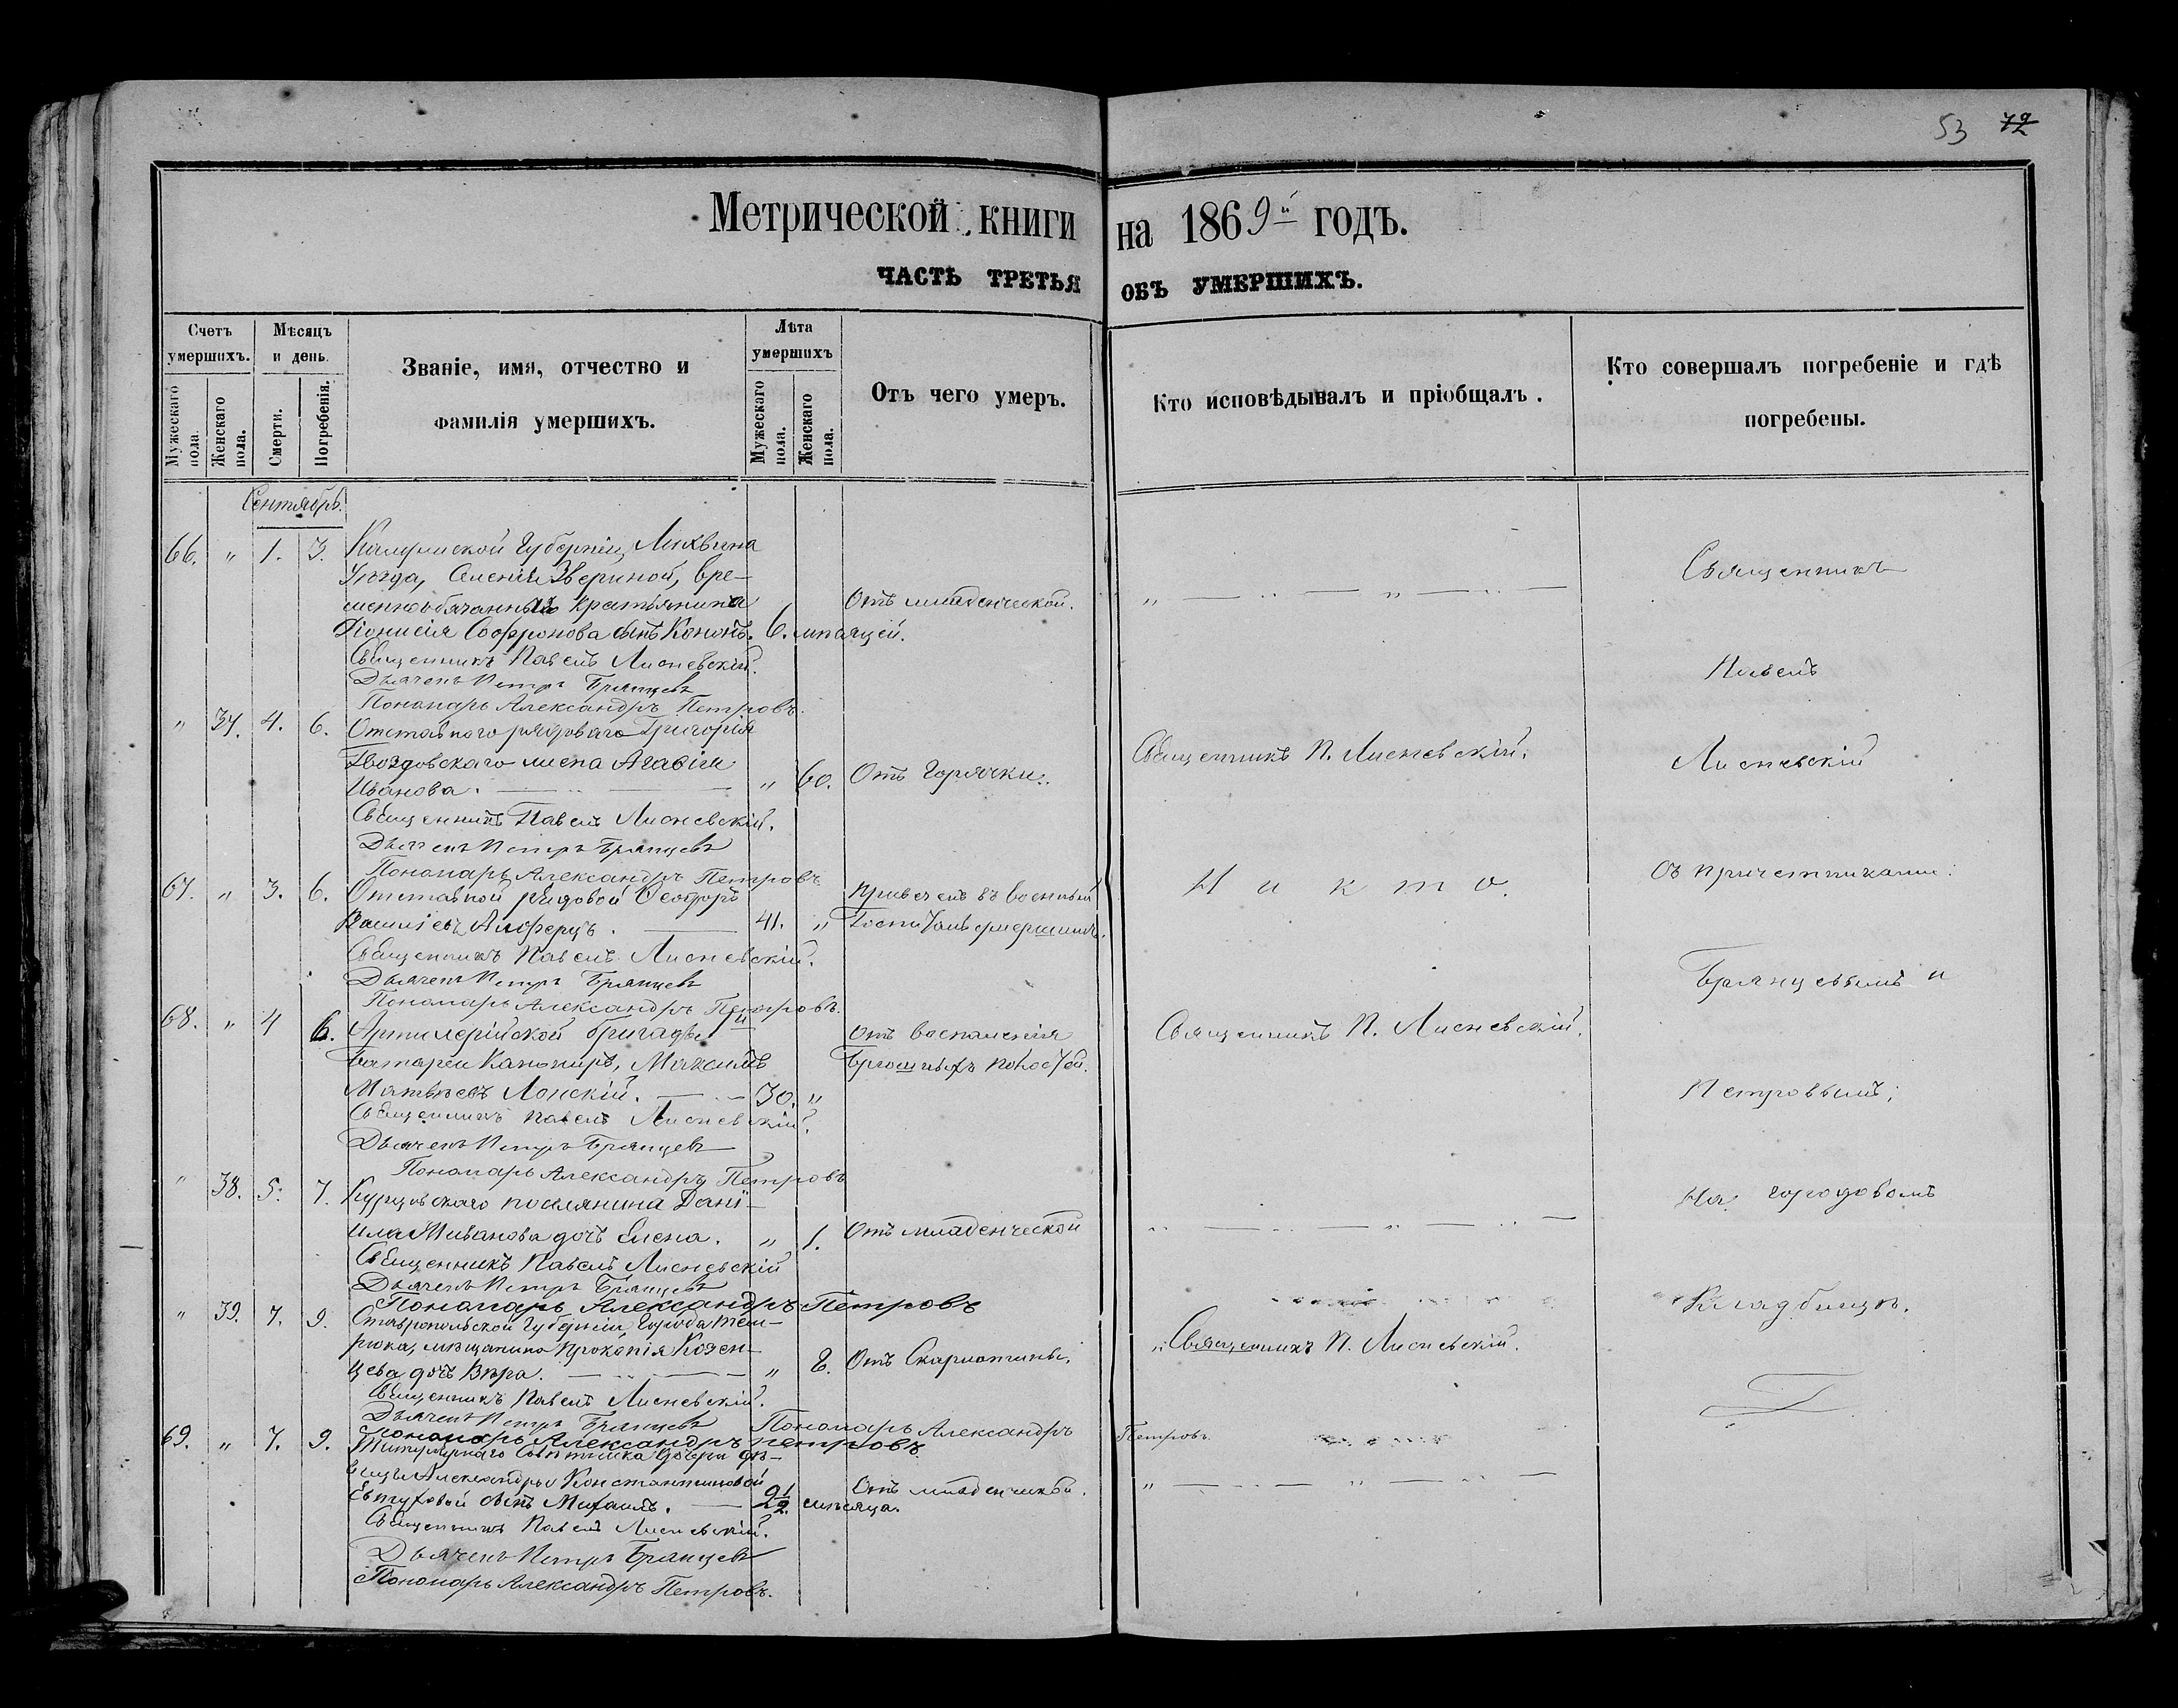 53 72
Метрической книги на 1869й годъ.
ЧАСТЬ ТРЕТЬЯ ОБЪ УМЕРШИХЪ.
Счетъ умершихъ.
Мѣсяцъ и день.
Званіе, имя, отчество и фамилія умершихъ.
Лѣта умершихъ
Отъ чего умеръ.
Кто исповѣдывалъ и пріобщалъ.
Кто совершалъ погребеніе и гдѣ погребены.
Мужескаго пола.
Женскаго пола.
Смерти.
Погребенія.
Мужескаго пола.
Женскаго пола.
Сентябрь.
66. " 1. 3. Калужской Губерніи, Лихвина
Уѣзда, Звериной, вре-
менно обязаннаго крестьянина Отъ младенческой.
Діонисія Софронова сынъ Кононъ. 6. мѣсяцей.
Священникъ Павелъ Лисневскій.
Дьячекъ Петръ Брянцевъ
Пономарь Александръ Петровъ.
" 37. 4. 6. Отставнаго рядоваго Григорія
Гвоздовскаго жена Агафія Священникъ П. Лисневскій.
Иванова. " 60. Отъ Горячки.
Священникъ Павелъ Лисневскій.
Дьячекъ Петръ Брянцевъ
Пономарь Александръ Петровъ.
67. " 3. 6. Отставной рядовой Ѳеодоръ Привезенъ въ военный Никто.
Василіевъ 41. " Госпиталь умершимъ.
Священникъ Павелъ Лисневскій.
Дьячекъ Петръ Брянцевъ
Пономарь Александръ Петровъ.
68. " 4 6. Артилерійской бригады Отъ воспаленія Священникъ П. Лисневскій.
батареи Канониръ, Максимъ Брюшныхъ полостей.
Матвѣевъ Лонскій. 30. "
Священникъ Павелъ Лисневскій.
Дьячекъ Петръ Брянцевъ
Пономарь Александръ Петровъ
" 38. 5. 7. поселянина Дані-
ила Иванова дочь Елена. " 1. Отъ младенческой
Священникъ Павелъ Лисневскій
Дьячекъ Петръ Брянцевъ
Пономарь Александръ Петровъ
" 39. 7. 9. Ставропольской Губерніи, Города Тем-
рюка, мѣщанина Прокопія Козен-
цева дочь Вѣра. " 8. Отъ Скарлатины. Священникъ П. Лисневскій.
Священникъ Павелъ Лисневскій.
Дьячекъ Петръ Брянцевъ Пономарь Александръ Петровъ
Пономарь Александръ Петровъ.
69. " 7. 9. Титулярнаго Совѣтника дочери дѣ-
вицы Александры Константиновой Отъ младенческой.
сынъ Михаилъ. 2½ мѣсяца.
Священникъ Павелъ Лисневскій.
Дьячекъ Петръ Брянцевъ
Пономарь Александръ Петровъ.
Священникъ
Павелъ
Лисневскій
съ причетниками:
Брянцевымъ и
Петровымъ;
На городовомъ
Кладбищѣ.